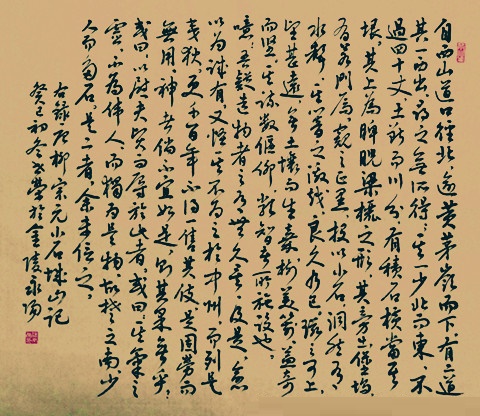 自西山道口徑北逾黃茅嶺而下有二道
其一西出尋之無所得其一少北而東不
過四十丈土斷而川分有積石橫當其
垠其上為睥睨梁欐之形其旁出堡塢
有若門焉窺之正黑投以小石洞然有
水聲其響之激越良久乃已環之可上
望甚遠無土壤而生嘉樹美箭益奇
而堅其疏數偃仰類智者所施設也
噫吾疑造物者之有無久矣及是愈
以為誠有又怪其不為之於中州而列是
夷狄更千百年不得售其伎是固勞而
無用神者倘不宜如是則其果無乎
或曰以慰夫賢而辱於此者或曰其氣之
靈不為偉人而獨為是物故楚之南少
人而多石是二者余未信之
右錄唐柳宗元小石城山記
癸巳初冬榮於金陵